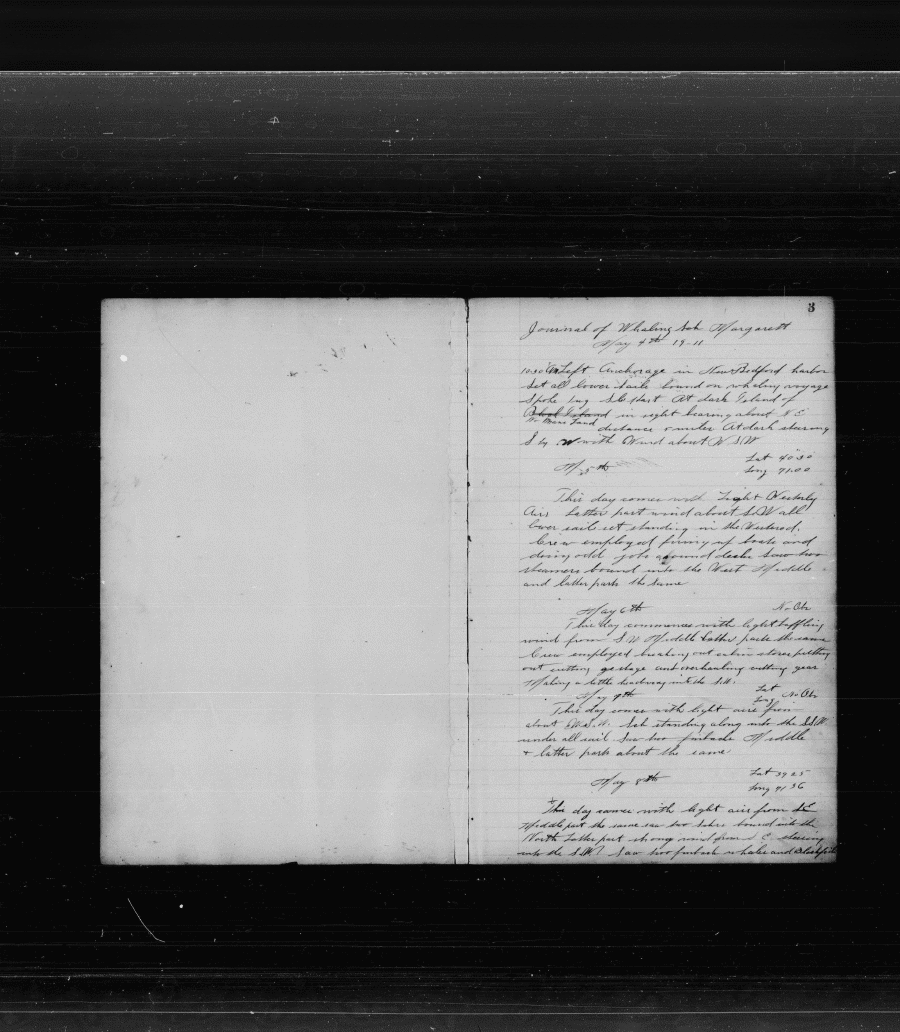 3
Journal of Whaling Sch Margarett
May 4th 19-11
10.30 AM Left Anchorage in New Bedford harbor
Set all lower Sails bound on whaling voyage
Spoke tug at dark Island of
Block Island in sight bearing about N E
No Mans Land
distance miles At dark steering
S by W with Wind about W S W
Lat 40°30
M 5th
Long 71.00
This day comes with Light Westerly
Airs latter part wind about S.W all
lower sails set standing in the Westward.
Crew employed fixing up boats and
doing odd jobs around decks Saw two
steamers bound into the West Middle
and latter parts the same
May 6th No Obs
This day commences with light baffling
wind from S.W Middle & latter parts the same
Crew employed breaking out cabin stores putting
out cutting and overhauling cutting gear
Making a little headway into the S.W.
Lat
May 7th Long No Obs
This day comes with light airs from
about Sch standing along into the S.S.W
under all sail Saw two finbacks Middle
+ latter parts about the same
Lat 39 25
May 8th
Long 71 36
This day comes with light airs from S.E
Middle part the same saw two Schrs bound into the
North Latter part strong wind from S.E. steering
into the S.W. Saw two finback whales and Blackfish